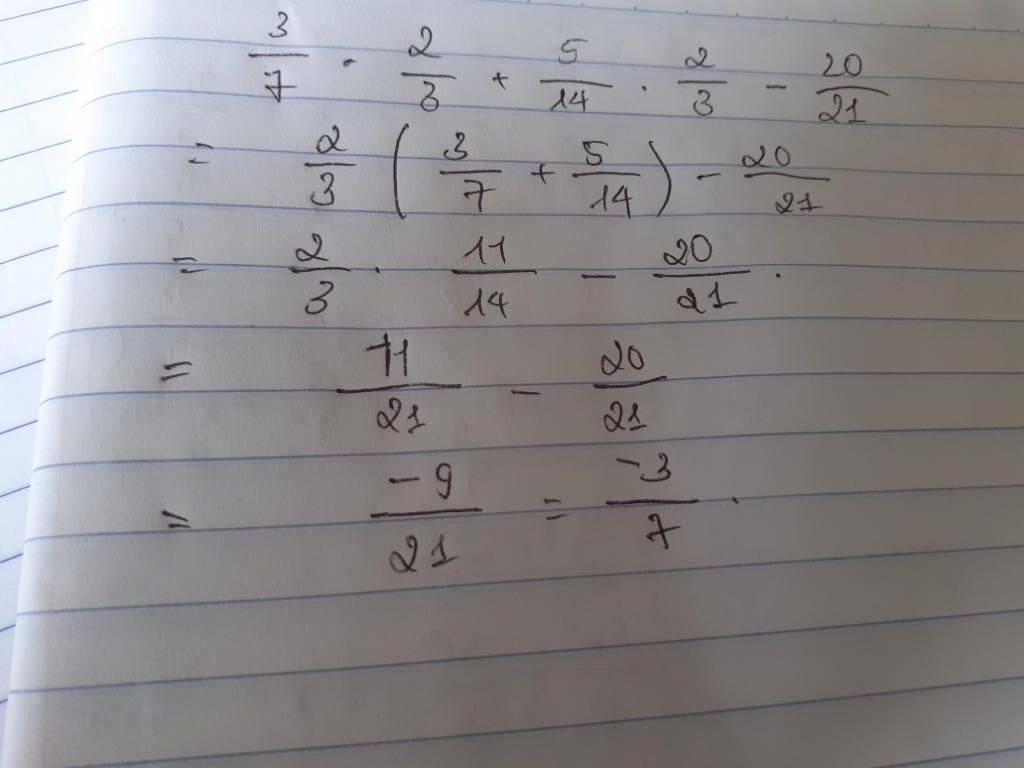 3/7 . 2/3 + 5/14 . 2/3 - 20/21
= 2/3 (3/7 + 5/14) - 20/21
= 2/3 . 11/14 - 20/21 .
= 11/21 - 20/21
= -9/21 = -3/7 .